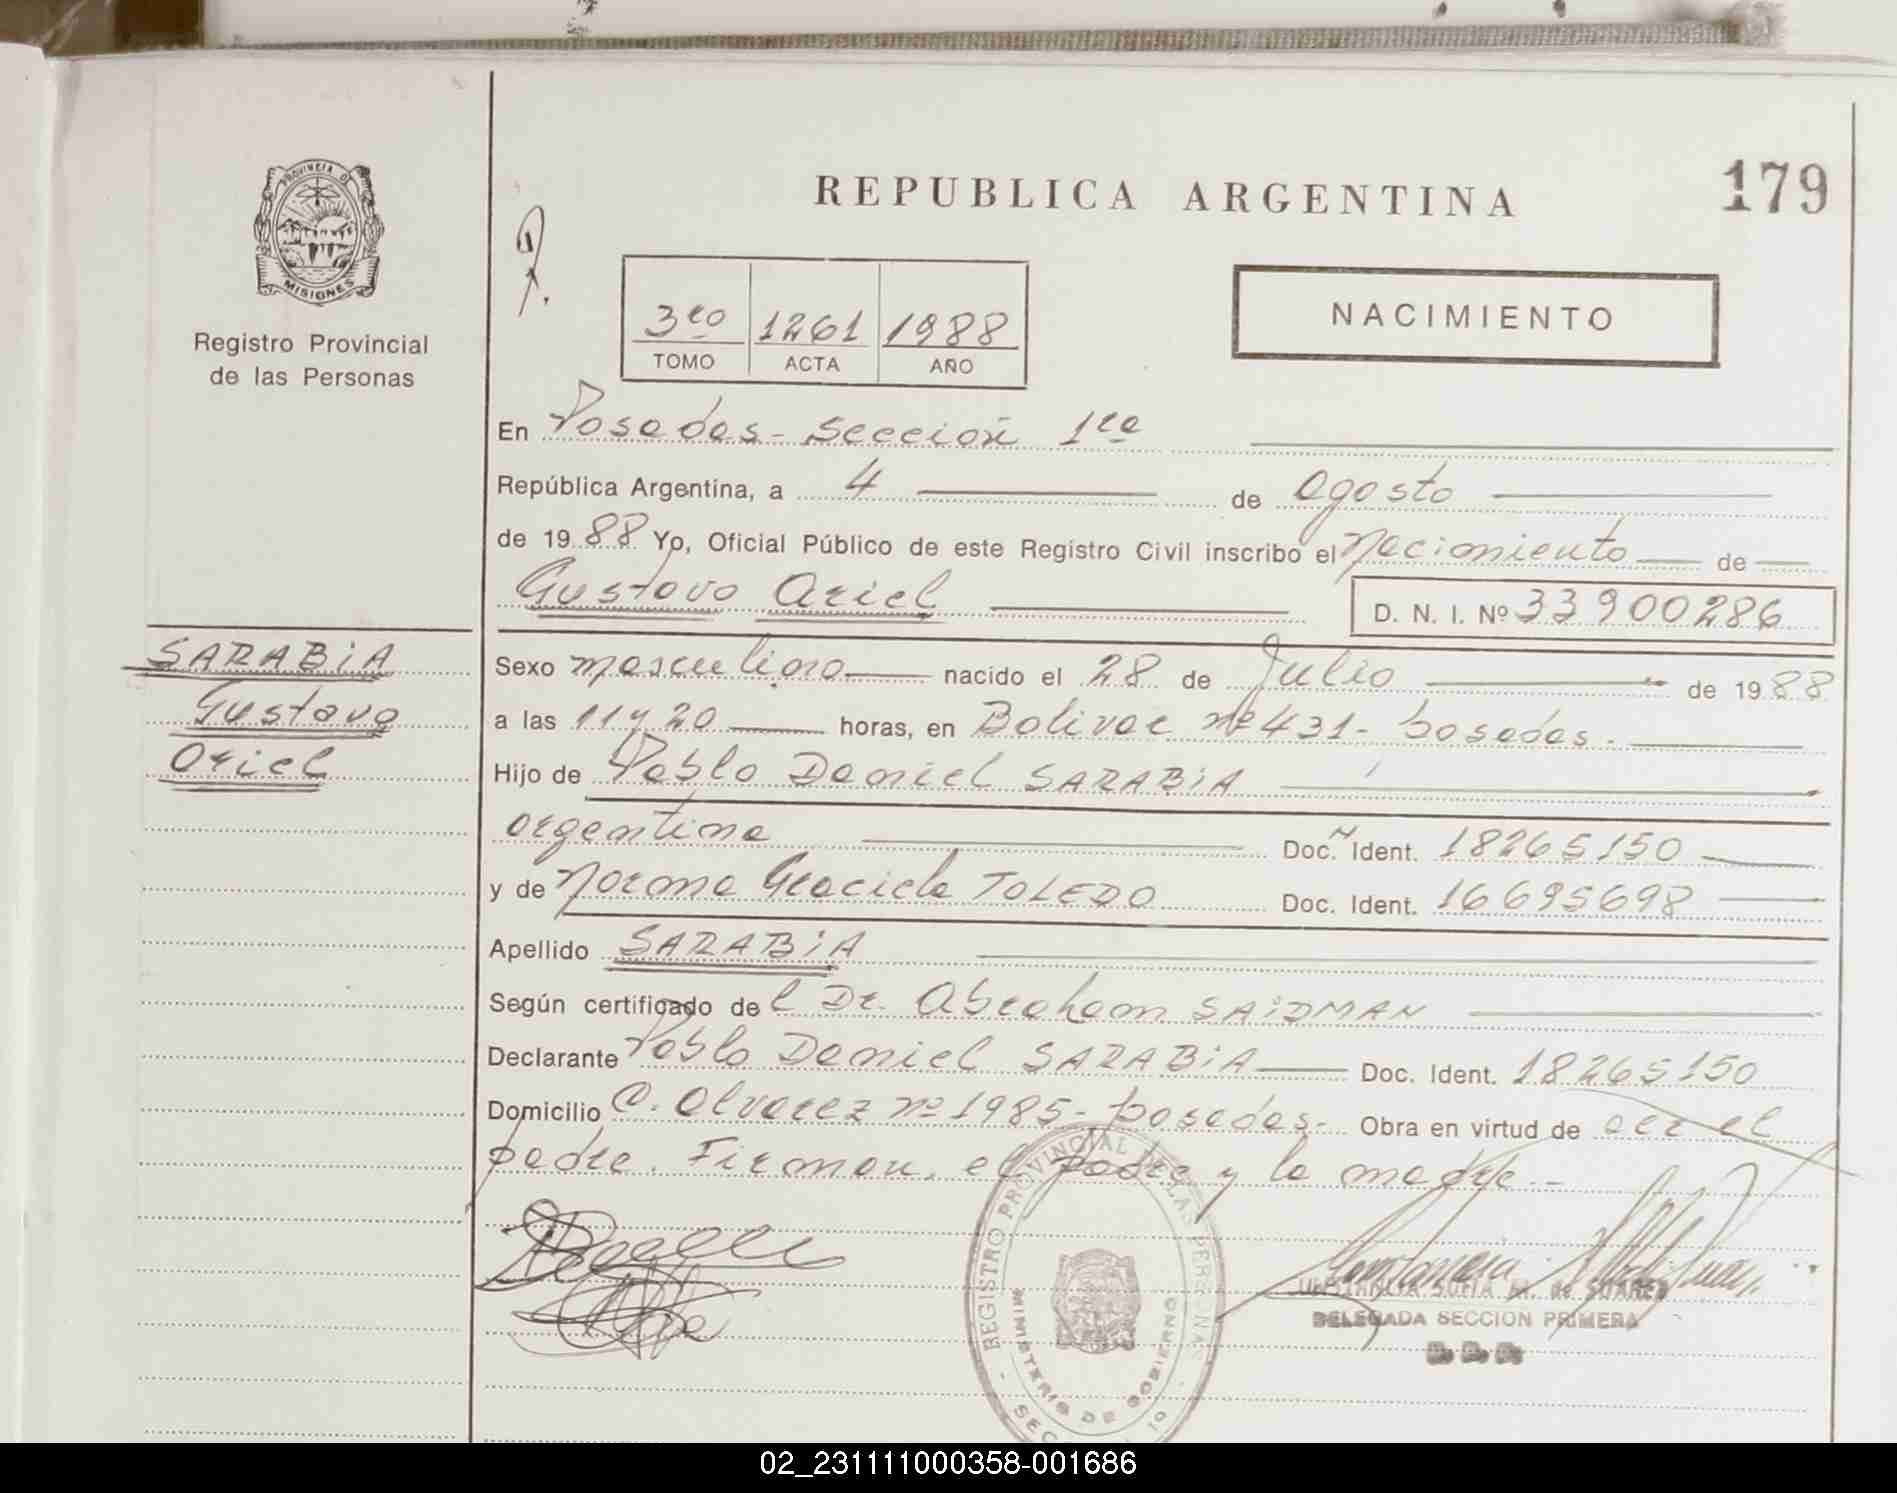 PROVINCIA DE
MISIONES
Registro Provincial
de las Personas
REPUBLICA ARGENTINA
179
3ro 1261 1988
TOMO ACTA AÑO
NACIMIENTO
En Posadas - Sección 1ra
República Argentina, a 4 de agosto
de 1988 Yo, Oficial Público de este Registro Civil inscribo el Nacimiento de
Gustavo Ariel
D. N. I. Nº 33900286
SARABiA
Gustavo
Ariel
Sexo masculino nacido el 28 de Julio de 1988
a las 11 y 20 horas, en Bolivar nº 431 - Posadas.
Hijo de Pablo Daniel SARABiA
argentina Doc. Ident. 18265150
y de Norma Graciela TOLEDO Doc. Ident. 16695698
Apellido SARABiA
Según certificado del Dr. Abraham SAiDMAN
Declarante Pablo Daniel SARABiA Doc. Ident. 18265150
Domicilio C. Alvarez nº 1985 - Posadas - Obra en virtud de ser el
padre. Firman, el padre y la madre.-
REGISTRO PROVINCIAL DE LAS PERSONAS
MINISTERIO DE GOBIERNO
SOFIA M. de SUAREZ
DELEGADA SECCION PRIMERA
02_231111000358-001686